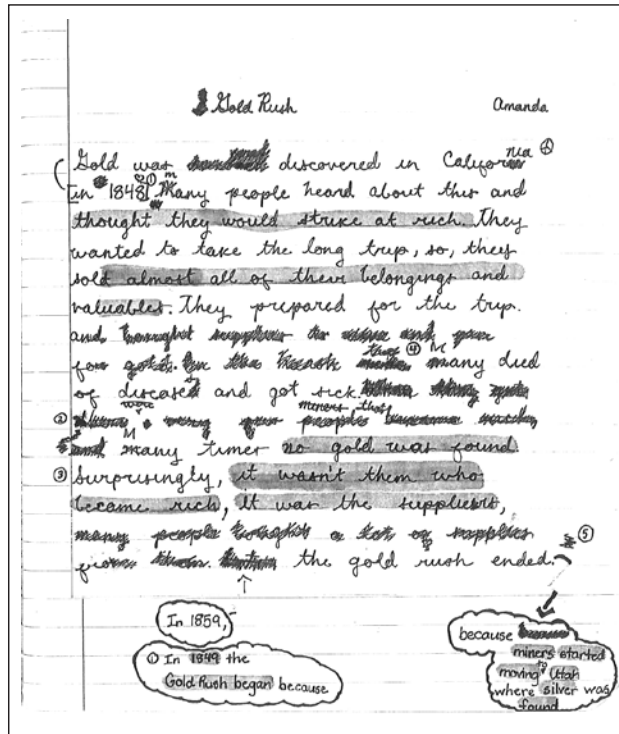 Gold Rush
Amanda
Gold was discovered in California
In 1848 ① Many people heard about this and
thought they would strike at rich. They
wanted to take the long trip, so, they
sold almost all of their belongings and
valuables. They prepared for the trip.
and bought supplies to mine and
for gold. ④ Many died
of disease and got sick.
② were very miners that
Many times no gold was found.
③ Surprisingly, it wasn't them who
became rich, it was the suppliers,
many people bought a lot of supplies ⑤
from them. the gold rush ended.
In 1859,
① In 1849 the
Gold Rush began because
because
miners started
moving to Utah
where silver was
found